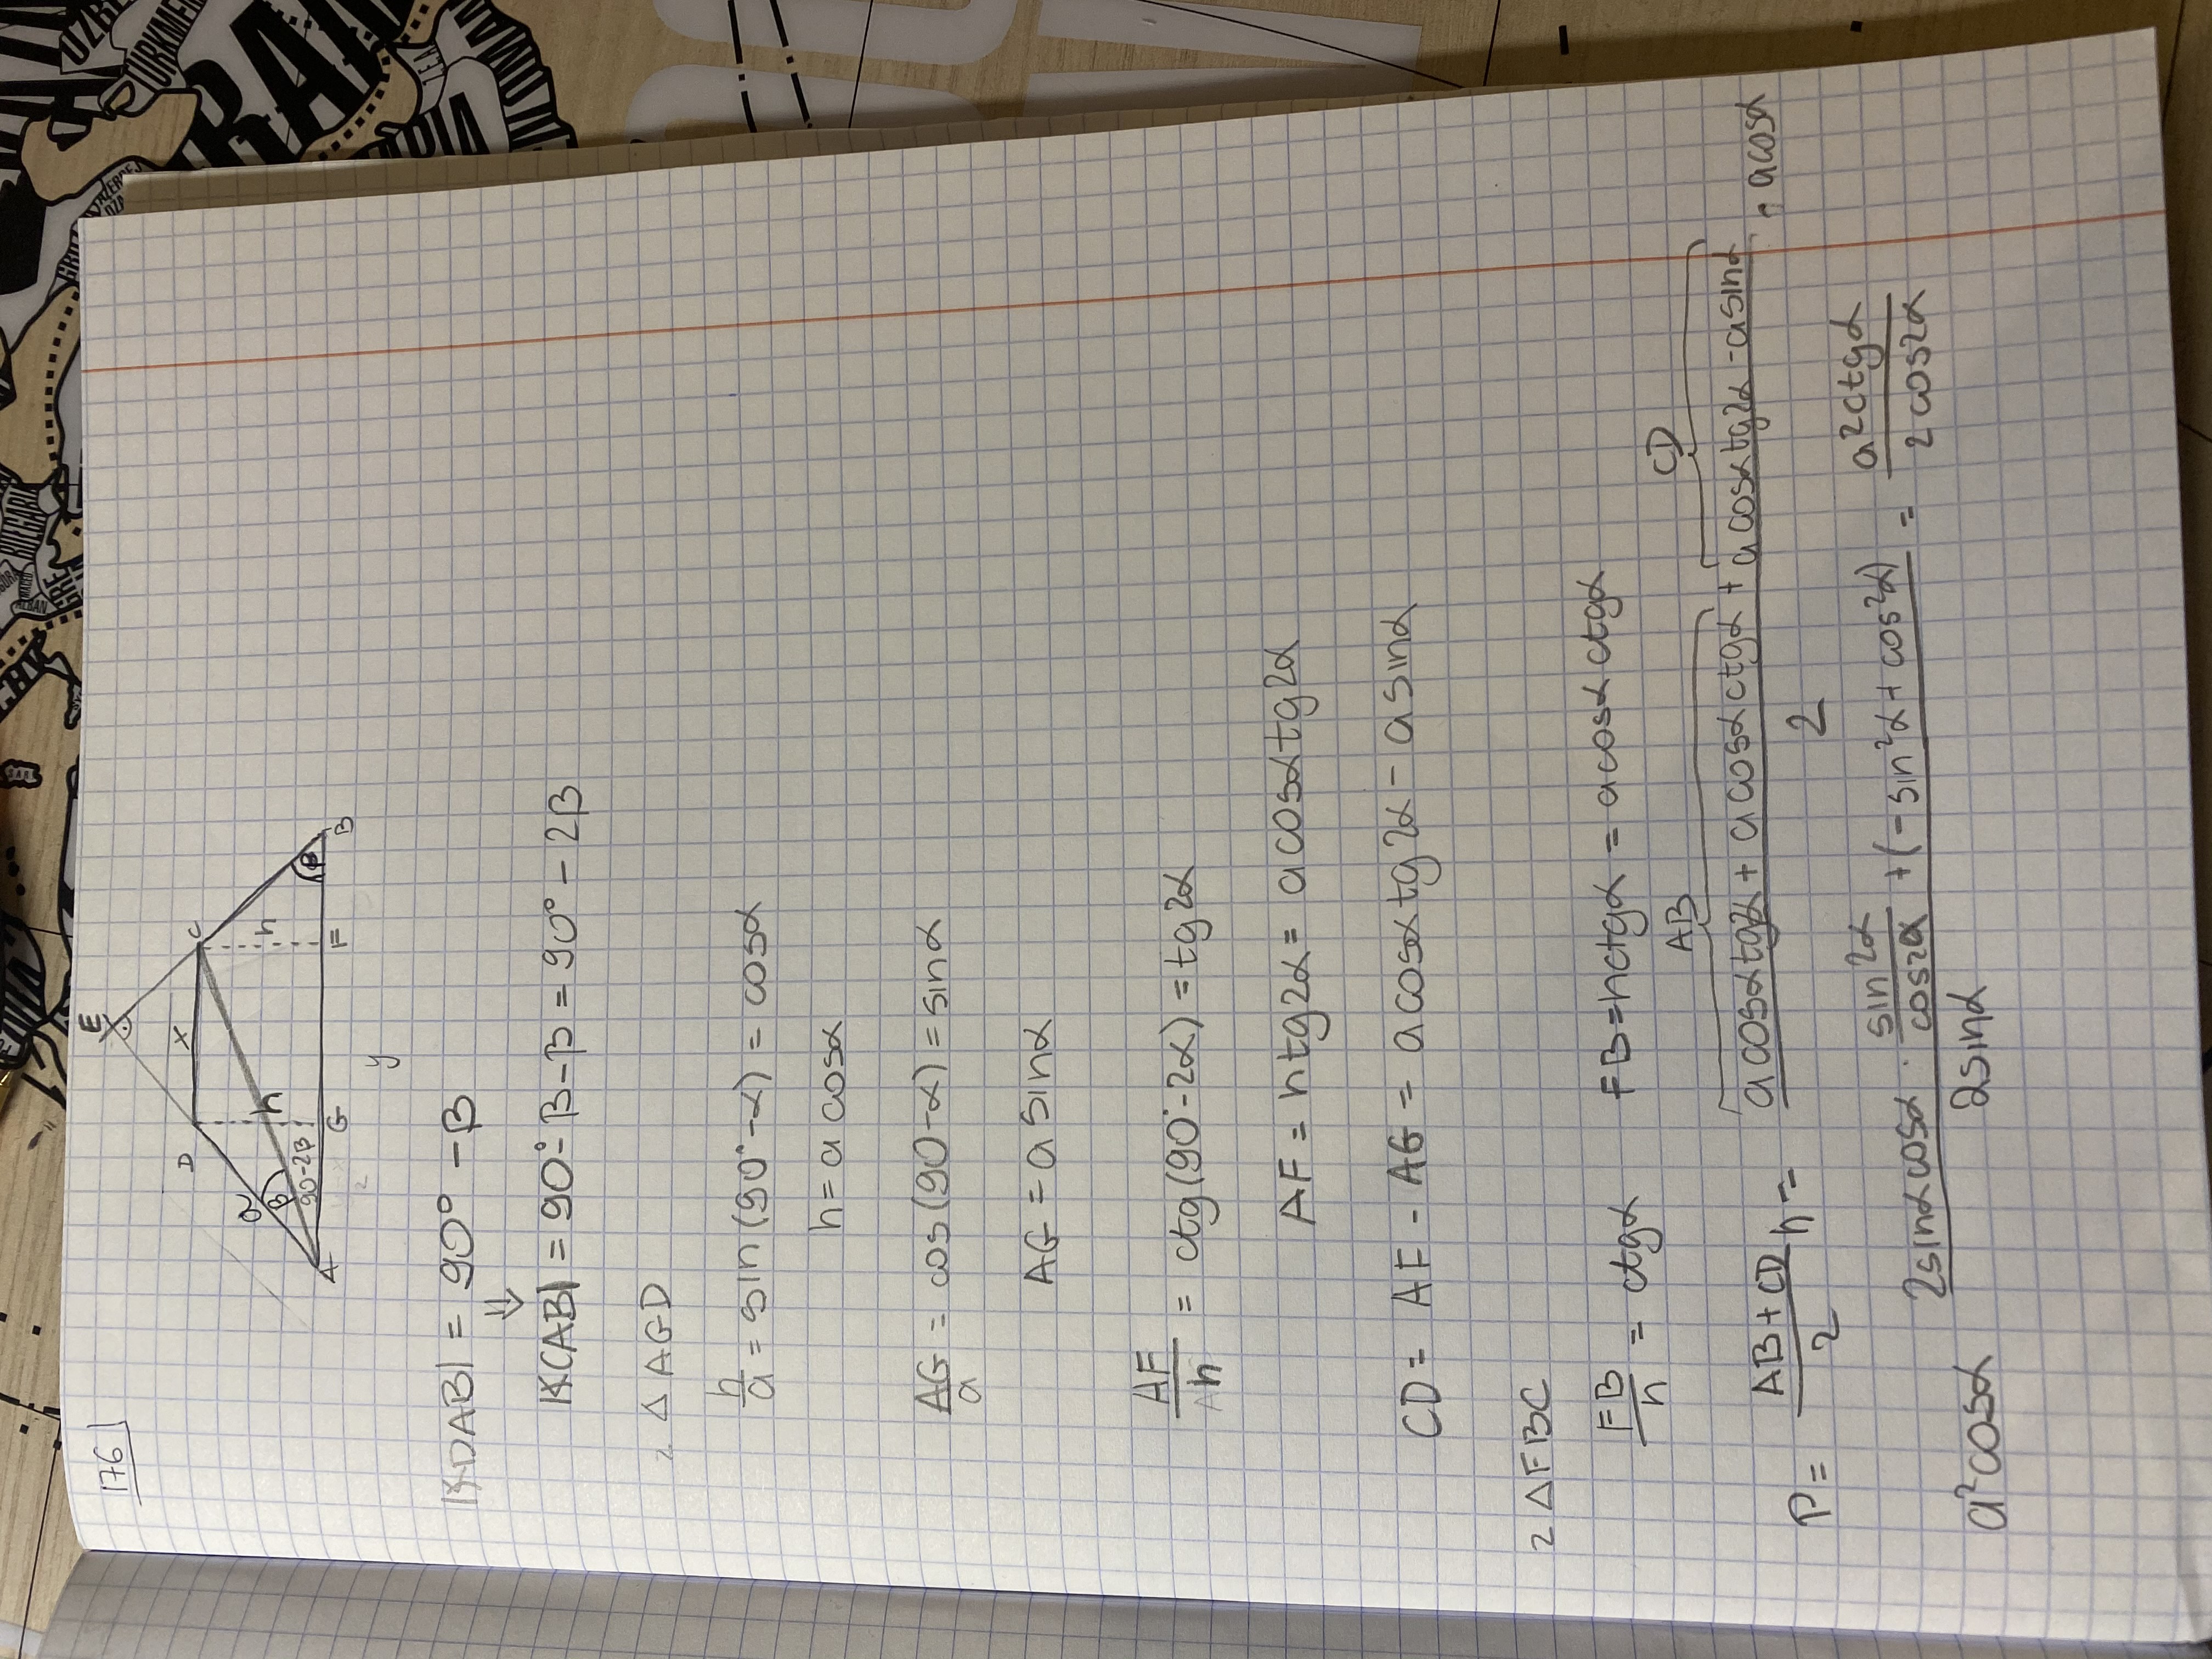 176
E
D
x
C
a
h
h
β
90-2β
β
A
G
F
B
y
|∢DAB| = 90° - β
⇓
|∢CAB| = 90° - β - β = 90° - 2β
z △ AGD
h/a = sin(90° - α) = cosα
h = a cosα
AG/a = cos(90 - α) = sinα
AG = a sinα
AF/h = ctg(90° - 2α) = tg2α
AF = h tg2α = a cosα tg2α
CD = AF - AG = a cosα tg2α - a sinα
z △ FBC
FB/h = ctgα FB = h ctgα = a cosα ctgα
AB CD
P = (AB + CD)/2 h = (a cosα tg2α + a cosα ctgα + a cosα tg2α - a sinα)/2 · a cosα
a² cosα (2 sinα cosα · sin2α/cos2α + (-sin²α + cos²α))/(2 sinα) = (a² ctgα)/(2 cos2α)
UZBE
TURKMEN
IRAN
GRUZ
AZERBEJ
BUŁGARIA